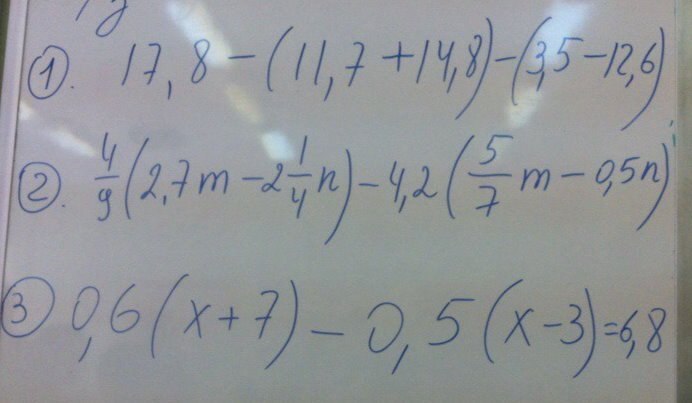 1. 17,8 - (11,7 + 14,8) - (3,5 - 12,6)
2. 4/9 (2,7m - 2 1/4 n) - 4,2 (5/7 m - 0,5n)
3 0,6 (x + 7) - 0,5 (x - 3) = 6,8